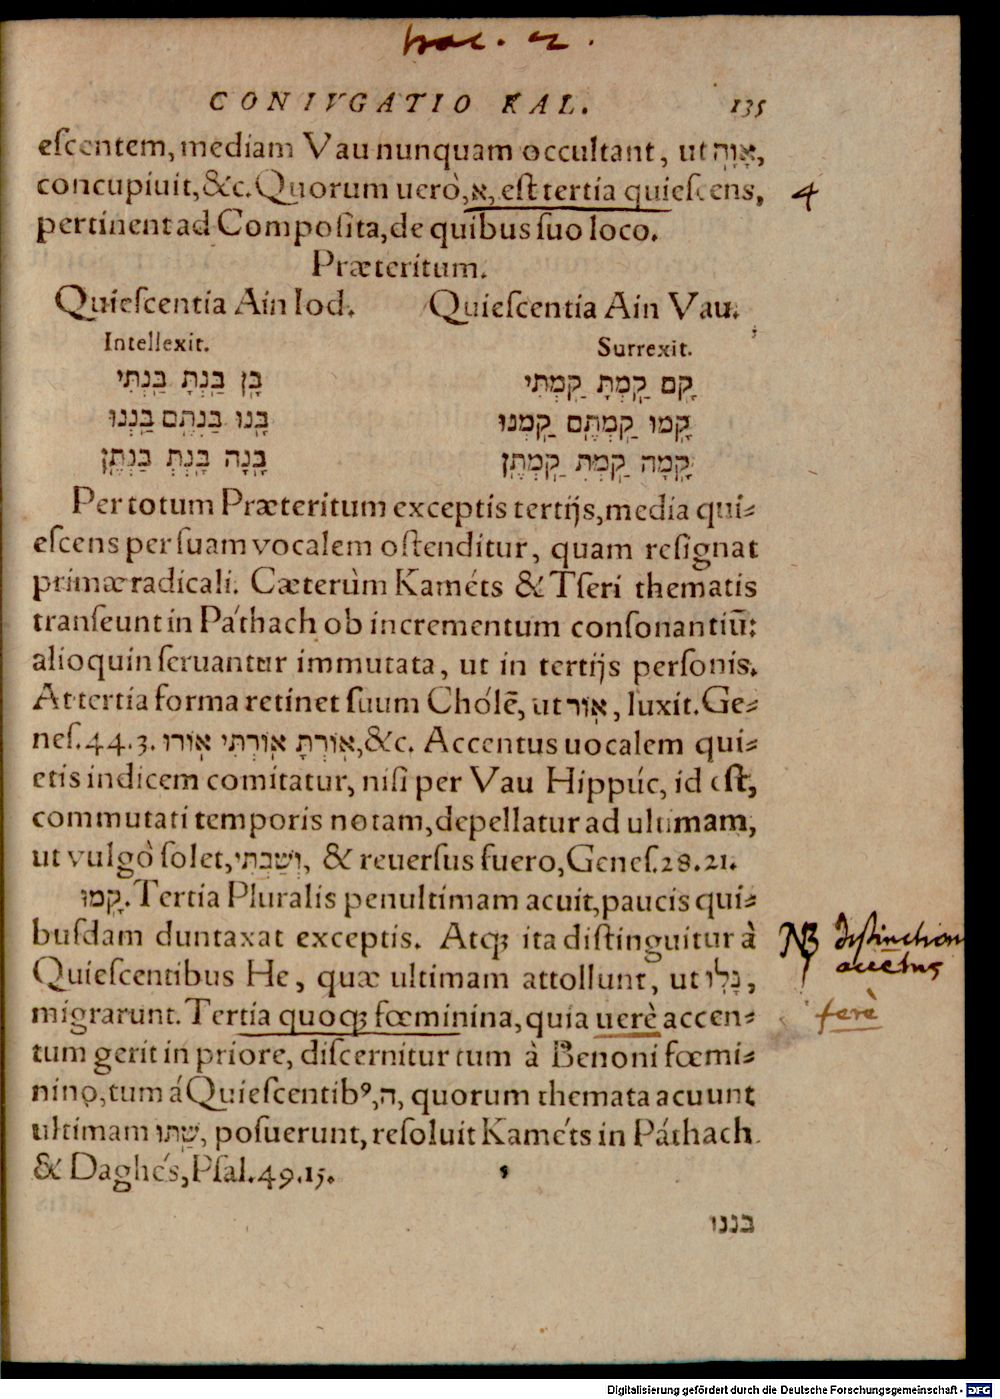 CONIVGATIO KAL. 135
eſcentem, mediam Vau nunquam occultant, ut אִוָּה,
concupiuit, &c. Quorum uerò, א, eſt tertia quieſcens, 4
pertinent ad Compoſita, de quibus ſuo loco.
Præteritum.
Quieſcentia Ain Iod. Quieſcentia Ain Vau.
Intellexit. Surrexit.
בָּן בַּנְתָּ בַּנְתִּי קָם קַמְתָּ קַמְתִּי
בָּנוּ בַּנְתֶּם בַּנְנוּ קָמוּ קַמְתֶּם קַמְנוּ
בָּנָה בַּנְתְּ בַּנְתֶּן קָמָה קַמְתְּ קַמְתֶּן
Per totum Præteritum exceptis tertijs, media qui-
eſcens per ſuam vocalem oſtenditur, quam reſignat
primæ radicali. Cæterùm Kaméts & Tſeri thematis
tranſeunt in Páthach ob incrementum conſonantiū:
alioquin ſeruantur immutata, ut in tertijs perſonis.
At tertia forma retinet ſuum Chólē, ut אוֹר, luxit. Ge-
neſ. 44. 3. אוֹרְתָּ אוֹרְתִּי אוֹרוּ, &c. Accentus uocalem qui-
etis indicem comitatur, niſi per Vau Hippúc, id eſt,
commutati temporis notam, depellatur ad ultimam,
ut vulgò ſolet, וְשַׁבְתִּי, & reuerſus fuero, Geneſ. 28. 21.
קָמוּ. Tertia Pluralis penultimam acuit, paucis qui-
buſdam duntaxat exceptis. Atq; ita diſtinguitur à
Quieſcentibus He, quæ ultimam attollunt, ut גָּלוּ,
migrarunt. Tertia quoq; fœminina, quia uerè accen-
tum gerit in priore, diſcernitur tum à Benoni fœmi-
nino, tum á Quieſcentibꝰ, ה, quorum themata acuunt
ultimam שַׁתּוּ, poſuerunt, reſoluit Kaméts in Páthach
& Daghés, Pſal. 49. 15.
NB distinction
fere
בננו
Digitalisierung gefördert durch die Deutsche Forschungsgemeinschaft - DFG